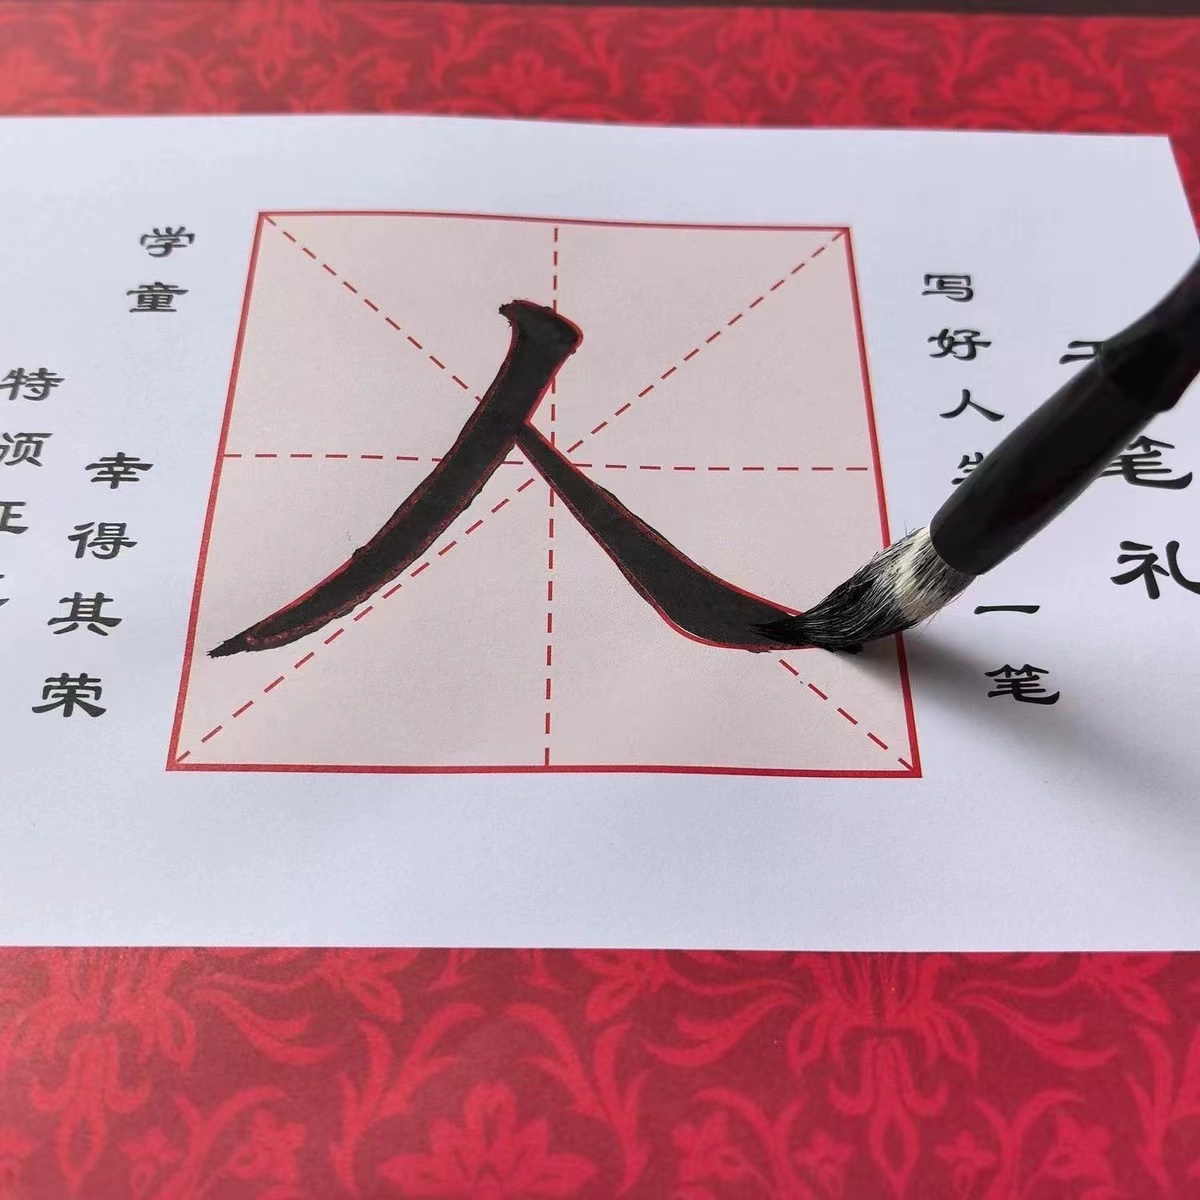 笔礼
写好人生一笔
人
学童
幸得其荣
特须